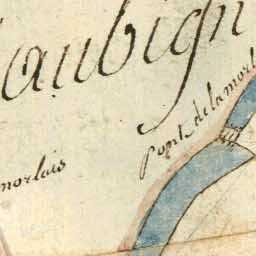 aubign
Pont de la morl
morlais